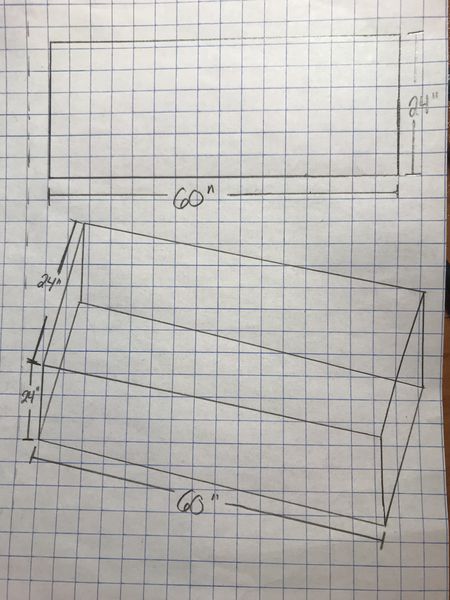 24"
60"
24"
24"
60"